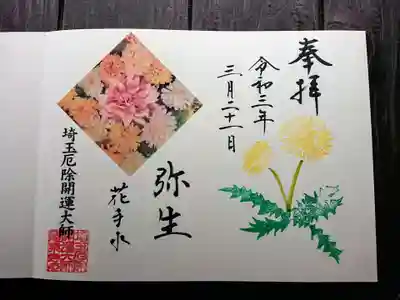 奉拝
令和三年
三月二十一日
弥生
花手水
埼玉厄除開運大師